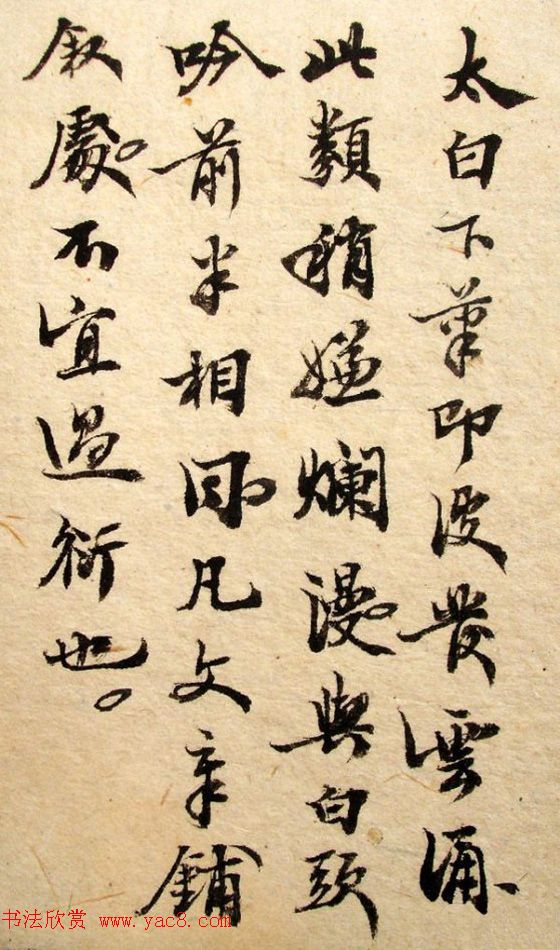 太白下筆即波發雲涌
此類稍嫌爛漫與白頭
吟前半相同。凡文章鋪
叙處。不宜過衍也。
书法欣赏 www.yac8.com